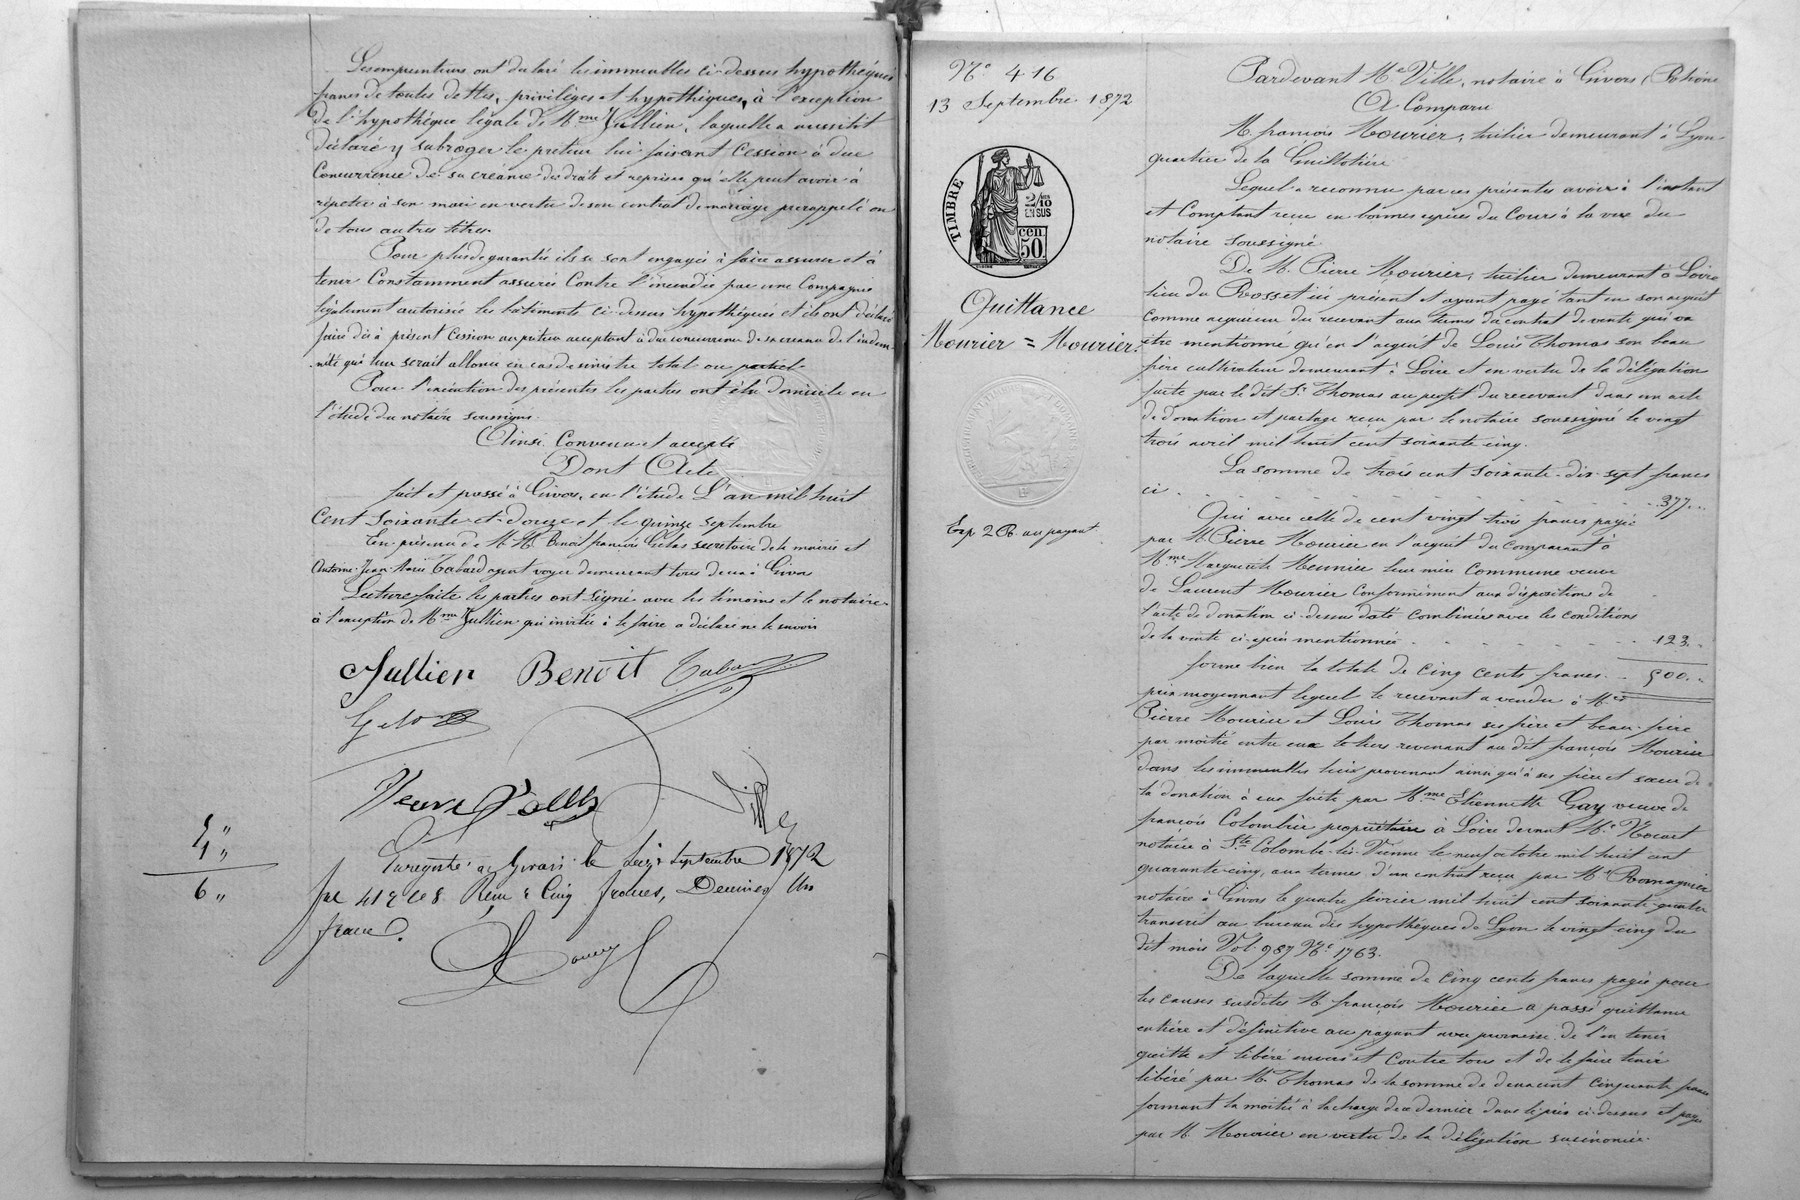 Les emprunteurs ont déclaré les immeubles ci-dessus hypothéqués
francs de toutes dettes, privilèges et hypothèques, à l'exception
de l'hypothèque légale de Mme Jullien, laquelle a aussitôt
déclaré y subroger le prêteur lui faisant Cession à due
Concurrence de sa créance des droits et reprises qu'elle peut avoir à
répéter à son mari en vertu de son contrat de mariage prerappelé ou
de tous autres titres.
Pour plus de garantie ils se sont engagés à faire assurer et à
tenir Constamment assurés Contre l'incendie par une Compagnie
légalement autorisée les bâtiments ci-dessus hypothéqués et ils ont déclaré
faire dès à présent Cession au prêteur acceptant à due concurrence de sa créance de l'indem-
nité qui leur serait allouée en cas de sinistre total ou partiel.
Pour l'exécution des présentes les parties ont élu domicile en
l'étude du notaire soussigné.
Ainsi Convenu et accepté
Dont Acte
fait et passé à Givors, en l'étude L'an mil huit
Cent soixante-et-douze et le quinze septembre
En présence de M.M. Benoit françois Gelas secrétaire de la mairie et
Antoine Jean Marie Tabard agent voyer demeurant tous deux à Givors
Lecture faite les parties ont signé avec les témoins et le notaire
à l'exception de Mme Jullien qui invitée à le faire a déclaré ne le savoir
Jullien Benoit Tabard
Gelas
Veuve
Ville
5 "
1 "
6 "
Enregistré à Givors le seize septembre 1872
fol 41 Reçu : Cinq francs, Decimes Un
franc.
No 416
13 Septembre 1872
TIMBRE
2/10
EN SUS
cen.
50
Quittance
Mourier = Mourier.
Exp 2 R. au payant
Pardevant Me Ville, notaire à Givors (Rhône
A Comparu
M. françois Mourier, tuilier demeurant à Lyon
quartier de la Guillotière
Lequel a reconnu par ces présentes avoir à l'instant
et Comptant reçu en bonnes espèces du Cours à la vue du
notaire soussigné
De M. Pierre Mourier, tuilier demeurant à Loire
lieu du Rosset ici présent et ayant payé tant en son acquit
comme acquéreur du recevant aux termes du contrat de vente qui va
être mentionné qu'en l'acquit de Louis Thomas son beau
frère cultivateur demeurant à Loire et en vertu de la délégation
faite par le dit Sr Thomas au profit du recevant dans un acte
de donation et partage reçu par le notaire soussigné le vingt
trois avril mil huit cent soixante cinq.
La somme de trois cent soixante-dix-sept francs
ci . . . . 377..
Qui avec celle de cent vingt trois francs payée
par M. Pierre Mourier en l'acquit du comparant à
Mme Marguerite Meunier leur mère Commune veuve
de Laurent Mourier Conformément aux dispositions de
l'acte de donation ci-dessus daté combinées avec les conditions
de la vente ci-après mentionnée . . . . 123..
forme bien la totale de cinq cents francs . . 500..
prix moyennant lequel le recevant a vendu à Mrs
Pierre Mourier et Louis Thomas ses frère et beau-frère
par moitié entre eux le tiers revenant au dit françois Mourier
dans les immeubles leur provenant ainsi qu'à ses frère et sœur de
la donation à eux faite par Mme Etiennette Gay veuve de
françois Colombier propriétaire à Loire devant Me Nocart
notaire à Ste Colombe-lès-Vienne le neuf octobre mil huit cent
quarante cinq, aux termes d'un contrat reçu par Me Romagnier
notaire à Givors le quatre février mil huit cent soixante quatre
transcrit au bureau des hypothèques de Lyon le vingt-cinq du
dit mois Vol. 987 No 1763.
De laquelle somme de cinq cents francs payée pour
les causes susdites M. françois Mourier a passé quittance
entière et définitive au payant avec promesse de l'en tenir
quitte et libéré envers et contre tous et de le faire tenir
libéré par M. Thomas de la somme de deux cent cinquante francs
formant la moitié à la charge de ce dernier dans le prix ci-dessus et payée
par M. Mourier en vertu de la délégation susénoncée.